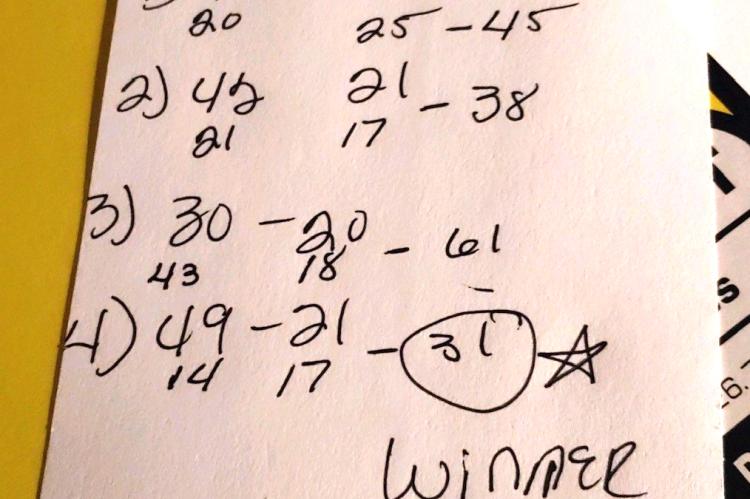 20 25 - 45
2) 42 21 - 38
21 17
3) 30 - 20 - 61
43 18
4) 49 - 21 - 31
14 17
WINNER